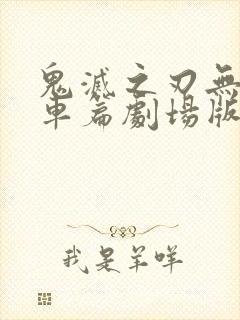 鬼滅之刃無
車篇劇場版
我是羊咩